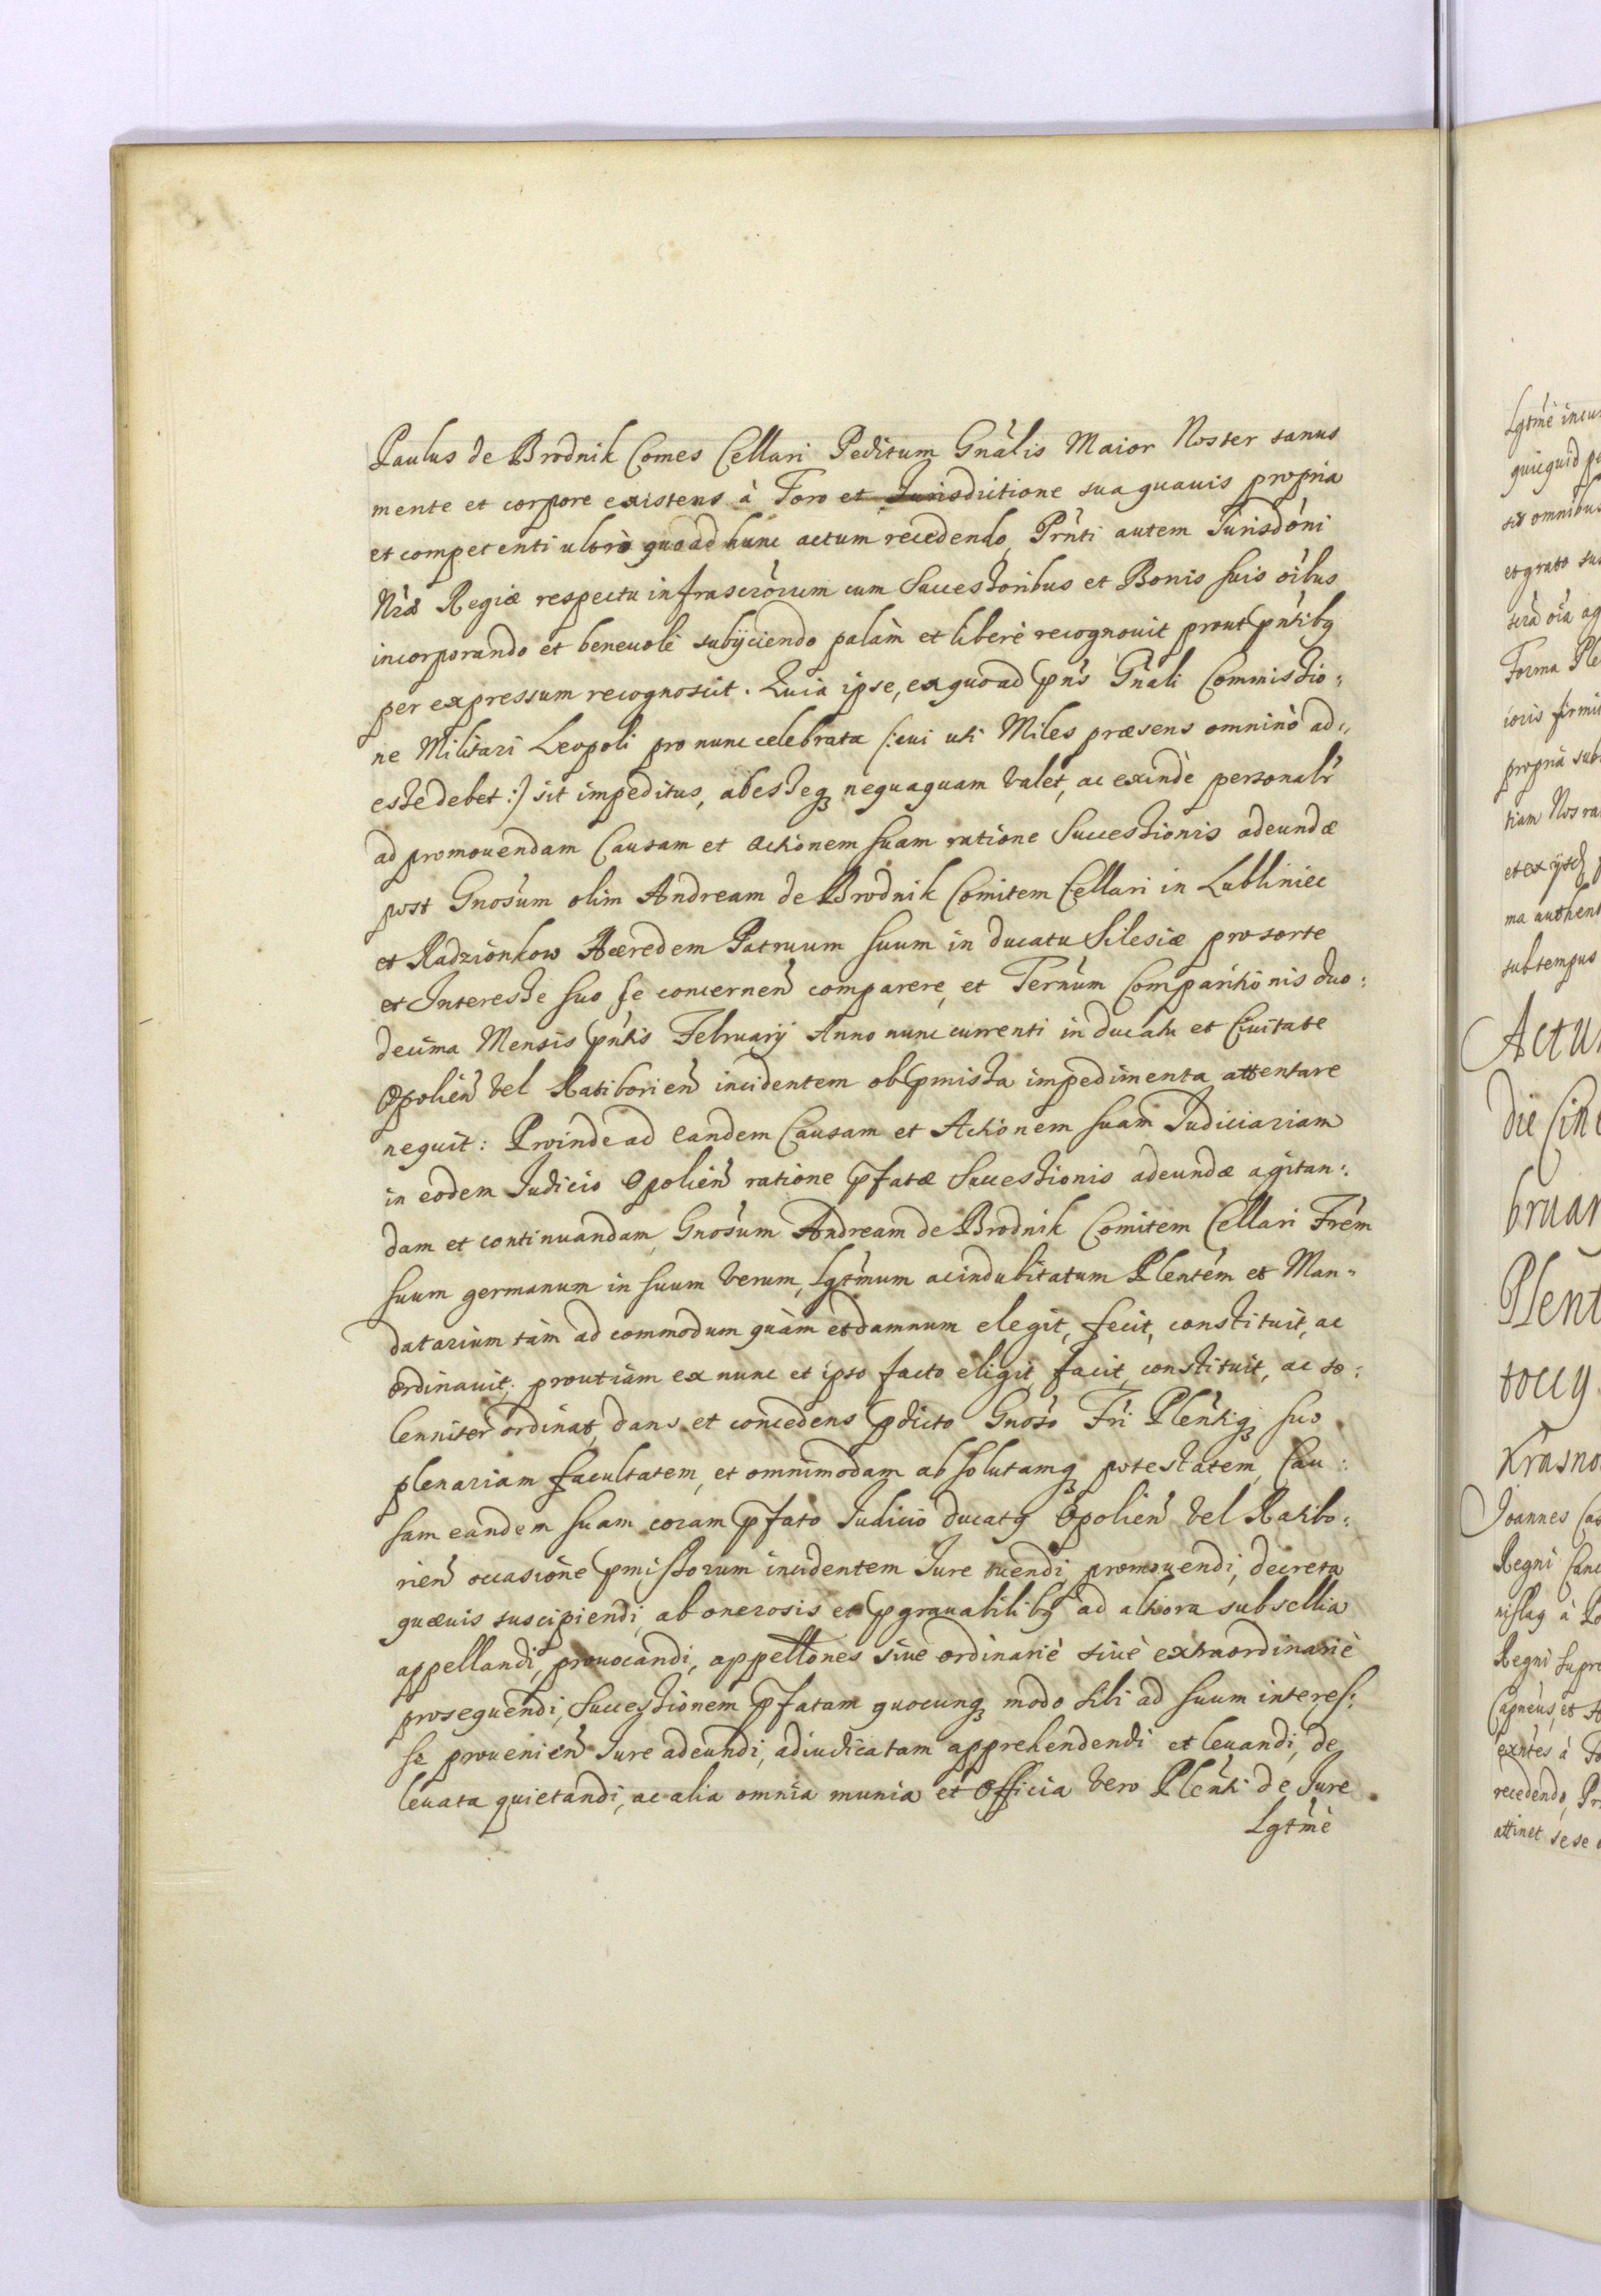 Paulus de Brodnik Comes Cellari Peditum Gnălis Maior Noster sanus
mente et corpore existens à Foro et Jurisdictione sua quauis propria
et competenti ultrò quoad hunc actum recedendo, Prńti autem Jurisdóni
Nrã Regiæ respectu infrascrŏrum cum Successoribus et Bonis suis oĭbus
incorporando et beneuolè subijciendo palàm et liberè recognouit prout pńtibq
per expressum recognoscit. Quia ipse, ex quo ad pńs Gńali Commissio:
ne Militari Leopoli pro nunc celebrata (: cui uti Miles præsens omninò ad„
esse debet :) sit impeditus, abesseq nequaquam valet, ac exindè personalr̃
ad promouendam Causam et Actionem suam ratione Successionis adeundæ
post Gnosũm olim Andream de Brodnik Comitem Cellari in Lubliniec
et Radzionkow Hæredem Patruum suum in ducatu Silesiæ pro sorte
et Interesse suo se concerneñ comparere, et Termũm Comparitionis duo:
decima Mensis pńtis February Anno nunc currenti in ducatu et Ciuitate
Opolieñ vel Ratiborieñ incidentem ob pmissa impedimenta attentare
nequit: Proinde ad eandem Causam et Actionem suam Judiciariam
in eodem Judicio Opolieñ ratione pfatæ Successionis adeundæ agitan:
dam et continuandam, Gnosũm Andream de Brodnik Comitem Cellari Frem̃
suum germanum in suum verum, Lgtm̃um ac indubitatum Plentem̃ et Man„
datarium tàm ad commodum quàm et damnum elegit, fecit, constituit, ac
ordinauit, prout iàm ex nunc et ipso facto eligit, facit, constituit, ac so:
lenniter ordinat, dans et concedens pdicto Gnosõ Fri̇̃ Pleñtiq suo
plenariam facultatem, et omnimodam absolutamq potestatem, Cau:
sam eandem suam coram pfato Judicio ducatq Opolieñ vel Ratibo:
rieñ occasione pmissorum incidentem Jure tuendi, promouendi, decreta
quæuis suscipiendi, ab onerosis et pgrauabilibq ad altiora subsellia
appellandi, prouocandi, appellões siue ordinariè siuè extraordinariè
prosequendi, Successionem pfatam quocunq modo sibi ad suum interes:
se prouenieñ Jure adeundi, adiudicatam apprehendendi et leuandi, de
leuata quietandi, ac alia omnia munia et Officia vero Pleñti de Jure
Lgtm̃è